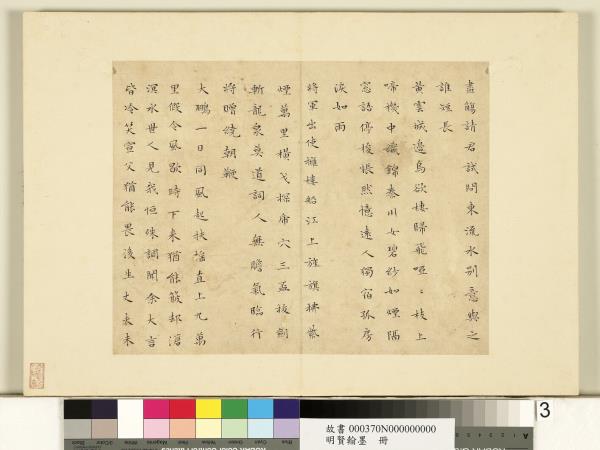 盡觴請君試問東流水別意與之
誰短長
黃雲城邊烏欲棲歸飛啞〻枝上
啼機中織錦秦川女碧紗如煙隔
窓語停梭悵然憶遠人獨宿孤房
淚如雨
將軍出使擁樓船江上旌旗拂紫
煙萬里橫戈探虎穴三盃拔劍
龍泉莫道詞人無膽氣臨行
將贈繞朝鞭
大鵬一日同風起扶搖直上九萬
里假令風歇時下來猶能簸却滄
溟水世人見我恒殊調聞余大言
皆冷笑宣父猶能畏後生丈夫未
3
故書 000370N000000000
明賢翰墨 冊